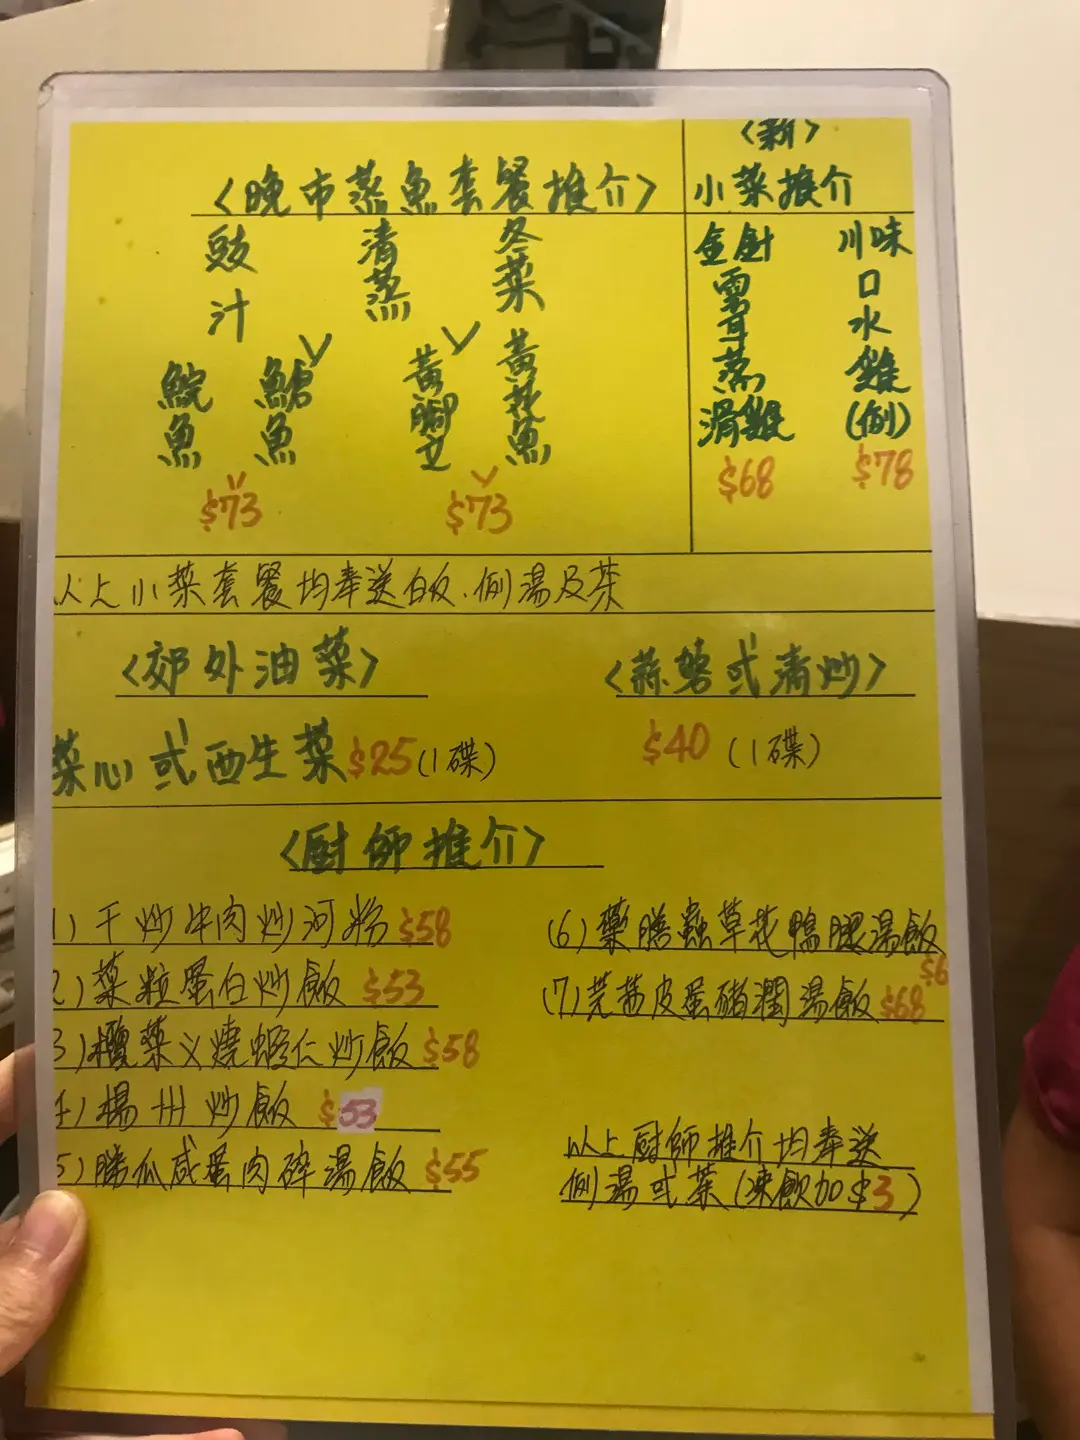 〈晚市蒸魚套餐推介〉
豉汁
清蒸
冬菜
鯇魚
鱠魚
黃腳立
黃花魚
$73
$73
〈新〉
小菜推介
金針雲耳蒸滑雞
$68
川味口水雞(例)
$78
以上小菜套餐均奉送白飯、例湯及茶
〈郊外油菜〉
菜心或西生菜$25(1碟)
〈蒜蓉或清炒〉
$40(1碟)
〈厨師推介〉
1)干炒牛肉炒河粉$58
2)菜粒蛋白炒飯 $53
3)欖菜义燒蝦仁炒飯$58
4)楊州炒飯 $53
5)勝瓜咸蛋肉碎湯飯 $55
(6)藥膳蟲草花鴨腿湯飯
$6
(7)芫茜皮蛋豬潤湯飯$68
以上厨師推介均奉送
例湯或茶(凍飲加$3)